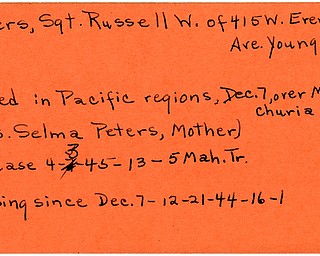 ers, Sgt. Russell W. of 415 W. Ever
Ave. Young
ed in Pacific regions, Dec. 7, over M
churia
s. Selma Peters, Mother)
ease 4-3-45-13-5 Mah. Tr.
sing since Dec. 7-12-21-44-16-1